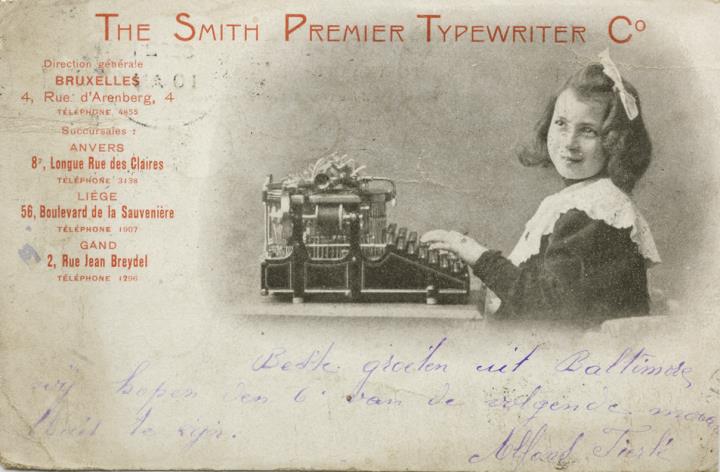 THE SMITH PREMIER TYPEWRITER Cº
Direction générale
BRUXELLES
4, Rue d'Arenberg, 4
TÉLÉPHONE 4855
Succursales :
ANVERS
8², Longue Rue des Claires
TÉLÉPHONE 3138
LIÉGE
56, Boulevard de la Sauvenière
TÉLÉPHONE 1907
GAND
2, Rue Jean Breydel
TÉLÉPHONE 1296
Beste groeten uit Baltimore
wij hopen den 6 van de volgende
te zijn.